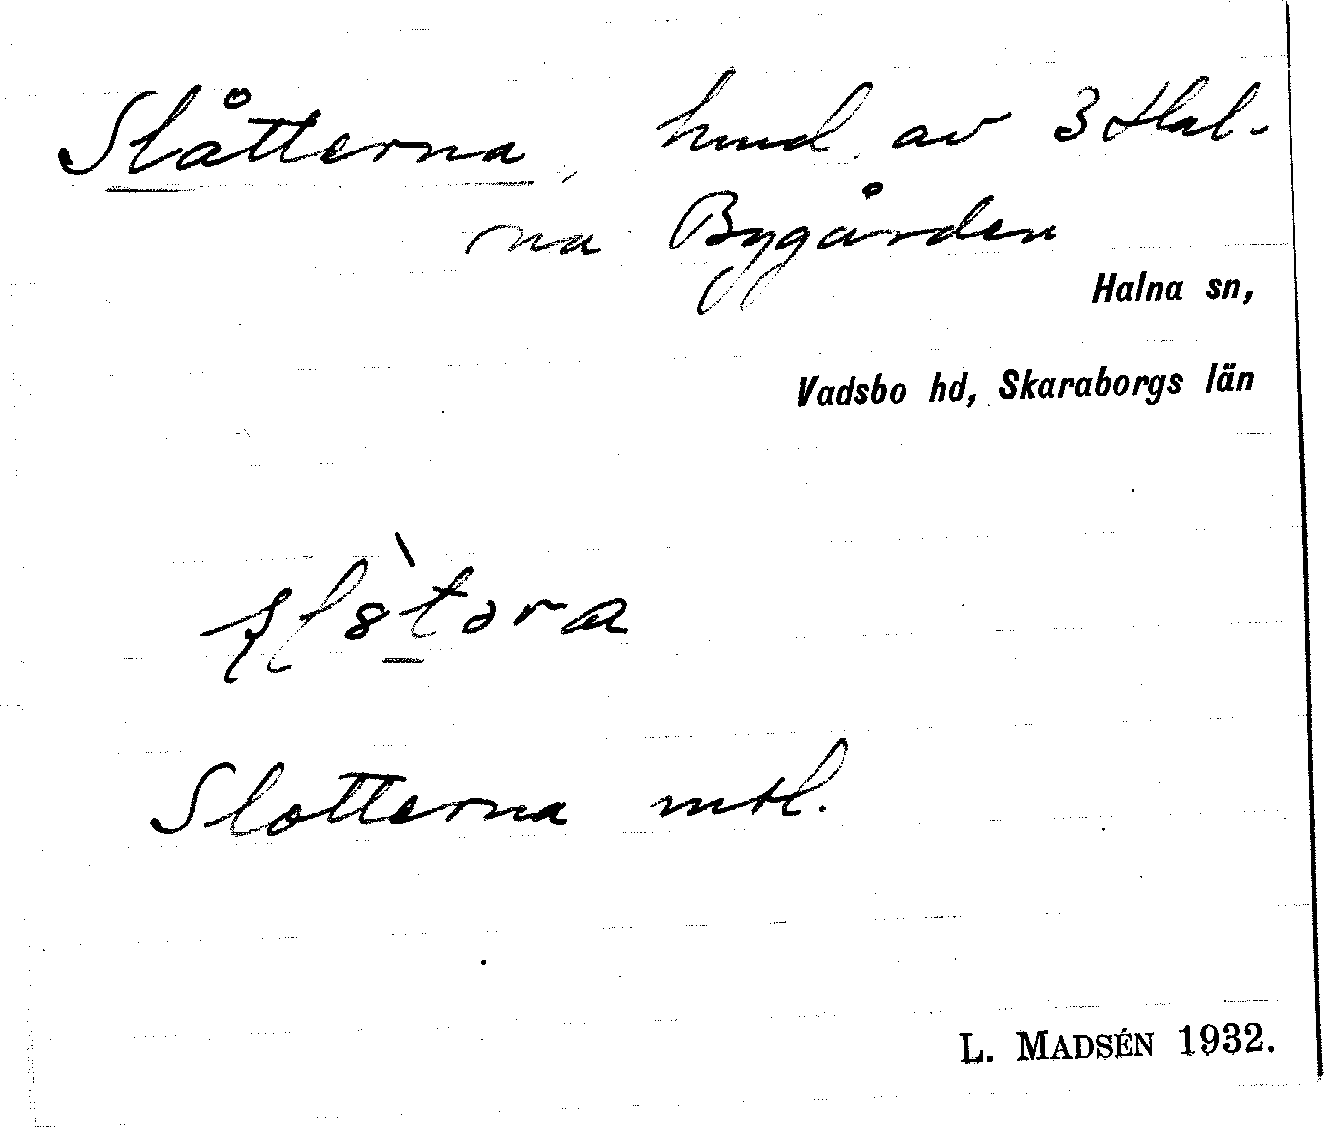 Slåtterna, hmd av 3 Hal-
na Bygården
Halna sn,
Vadsbo hd, Skaraborgs län
Slotterna mtl.
L. MADSÉN 1932.